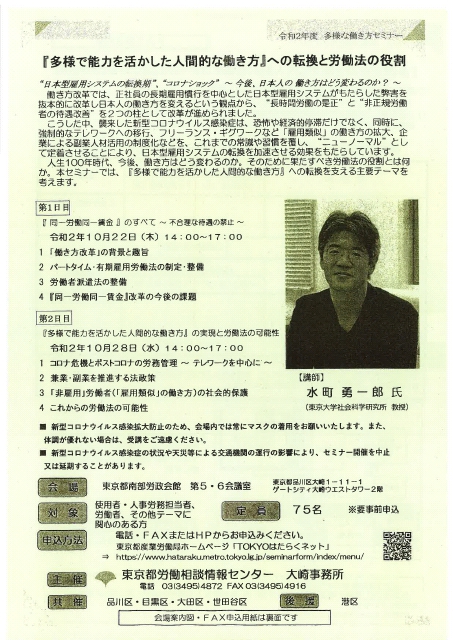 令和2年度 多様な働き方セミナー
『多様で能力を活かした人間的な働き方』への転換と労働法の役割
“日本型雇用システムの転換期”、“コロナショック” ～ 今後、日本人の 働き方はどう変わるのか? ～
働き方改革では、正社員の長期雇用慣行を中心とした日本型雇用システムがもたらした弊害を
抜本的に改革し日本人の働き方を変えるという観点から、“長時間労働の是正”と“非正規労働
者の待遇改善”を2つの柱として改革が進められました。
こうした中、襲来した新型コロナウイルス感染症は、恐怖や経済的停滞だけでなく、同時に、
強制的なテレワークへの移行、フリーランス・ギグワークなど「雇用類似」の働き方の拡大、企
業による副業人材活用の制度化などを、これまでの常識や習慣を覆し、“ニューノーマル”とし
て定着させることにより、日本型雇用システムの転換を加速させる効果をもたらしています。
人生100年時代、今後、働き方はどう変わるのか。そのために果たすべき労働法の役割とは何
か。本セミナーでは、『多様で能力を活かした人間的な働き方』への転換を支える主要テーマを
考えます。
第1日目
『 同一労働同一賃金 』のすべて ～ 不合理な待遇の禁止 ～
令和2年10月22日（木）14:00～17:00
1 「働き方改革」の背景と趣旨
2 パートタイム・有期雇用労働法の制定・整備
3 労働者派遣法の整備
4 『同一労働同一賃金』改革の今後の課題
第2日目
『多様で能力を活かした人間的な働き方』の実現と労働法の可能性
令和2年10月28日（水）14:00～17:00
1 コロナ危機とポストコロナの労務管理 ～ テレワークを中心に～
2 兼業・副業を推進する法政策
3 「非雇用」労働者(「雇用類似」の働き方)の社会的保護
4 これからの労働法の可能性
【講師】
水町 勇一郎 氏
（東京大学社会科学研究所 教授）
■ 新型コロナウイルス感染拡大防止のため、会場内では常にマスクの着用をお願いいたします。また、
体調が優れない場合は、受講をご遠慮ください。
■ 新型コロナウイルス感染症の状況や天災等による交通機関の運行の影響により、セミナー開催を中止
又は延期することがあります。
会場 東京都南部労政会館 第5・6会議室 東京都品川区大崎1－11－1
ゲートシティ大崎ウエストタワー2階
対象 使用者・人事労務担当者、
労働者、その他テーマに
関心のある方
定員 75名 ※要事前申込
申込方法 電話・FAXまたはHPからお申込みください。
東京都産業労働局ホームページ「TOKYOはたらくネット」
⇒ https://www.hataraku.metro.tokyo.lg.jp/seminarform/index/menu/
主催 東京都労働相談情報センター 大崎事務所
電話 03(3495)4872 FAX 03(3495)4916
共催 品川区・目黒区・大田区・世田谷区 後援 港区
会場案内図・FAX申込用紙は裏面です